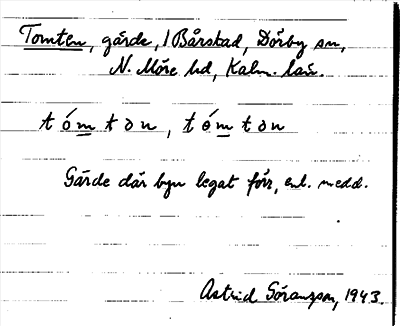 Tomten, gärde, / Bårstad, Dörby sn,
N. Möre hd, Kalm. län.
t ó m t ə n, t ó m t ə n
Gärde där byn legat förr, enl. medd.
Astrid Göransson, 1943.